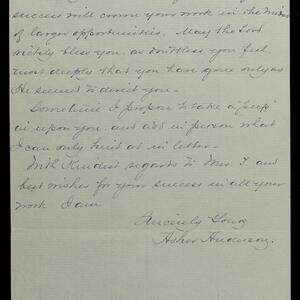 success will crown your work in the
of larger opportunities. May the Lord
richly bless you, as doubtless you feel
most deeply that you have gone only as
He seemed to direct you.
Sometime I propose to take a "peep"
in upon you, and add in person what
I can only hint at in letter.
With kindest regards to Mrs. F. and
best wishes for your success in all your
work I am
Sincerely Yours
Asher Anderson.